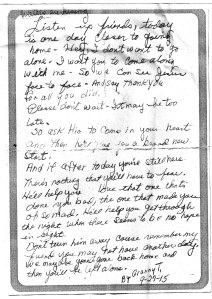 Listen my friends, today
is one day closer to going
home - Hey, I don't want to go
alone - I want you to come along
with me - So we can see Jesus
face to face - And say thank you
for all you did.
Please don't wait - It may be too
late.
So ask Him to come in your heart
and then he'll give you a brand new
start.
And if after today you're still here.
There's nothing that you'll have to fear.
He'll help you the one that that's
done you bad, the one that made you
so mad. He'll help you get through
the night when there seems to be no hope
in sight.
Don't turn him away cause remember my
friend you may not have another day.
We may be going back home and
then you'll be left alone.
By Granny T.
9-29-15